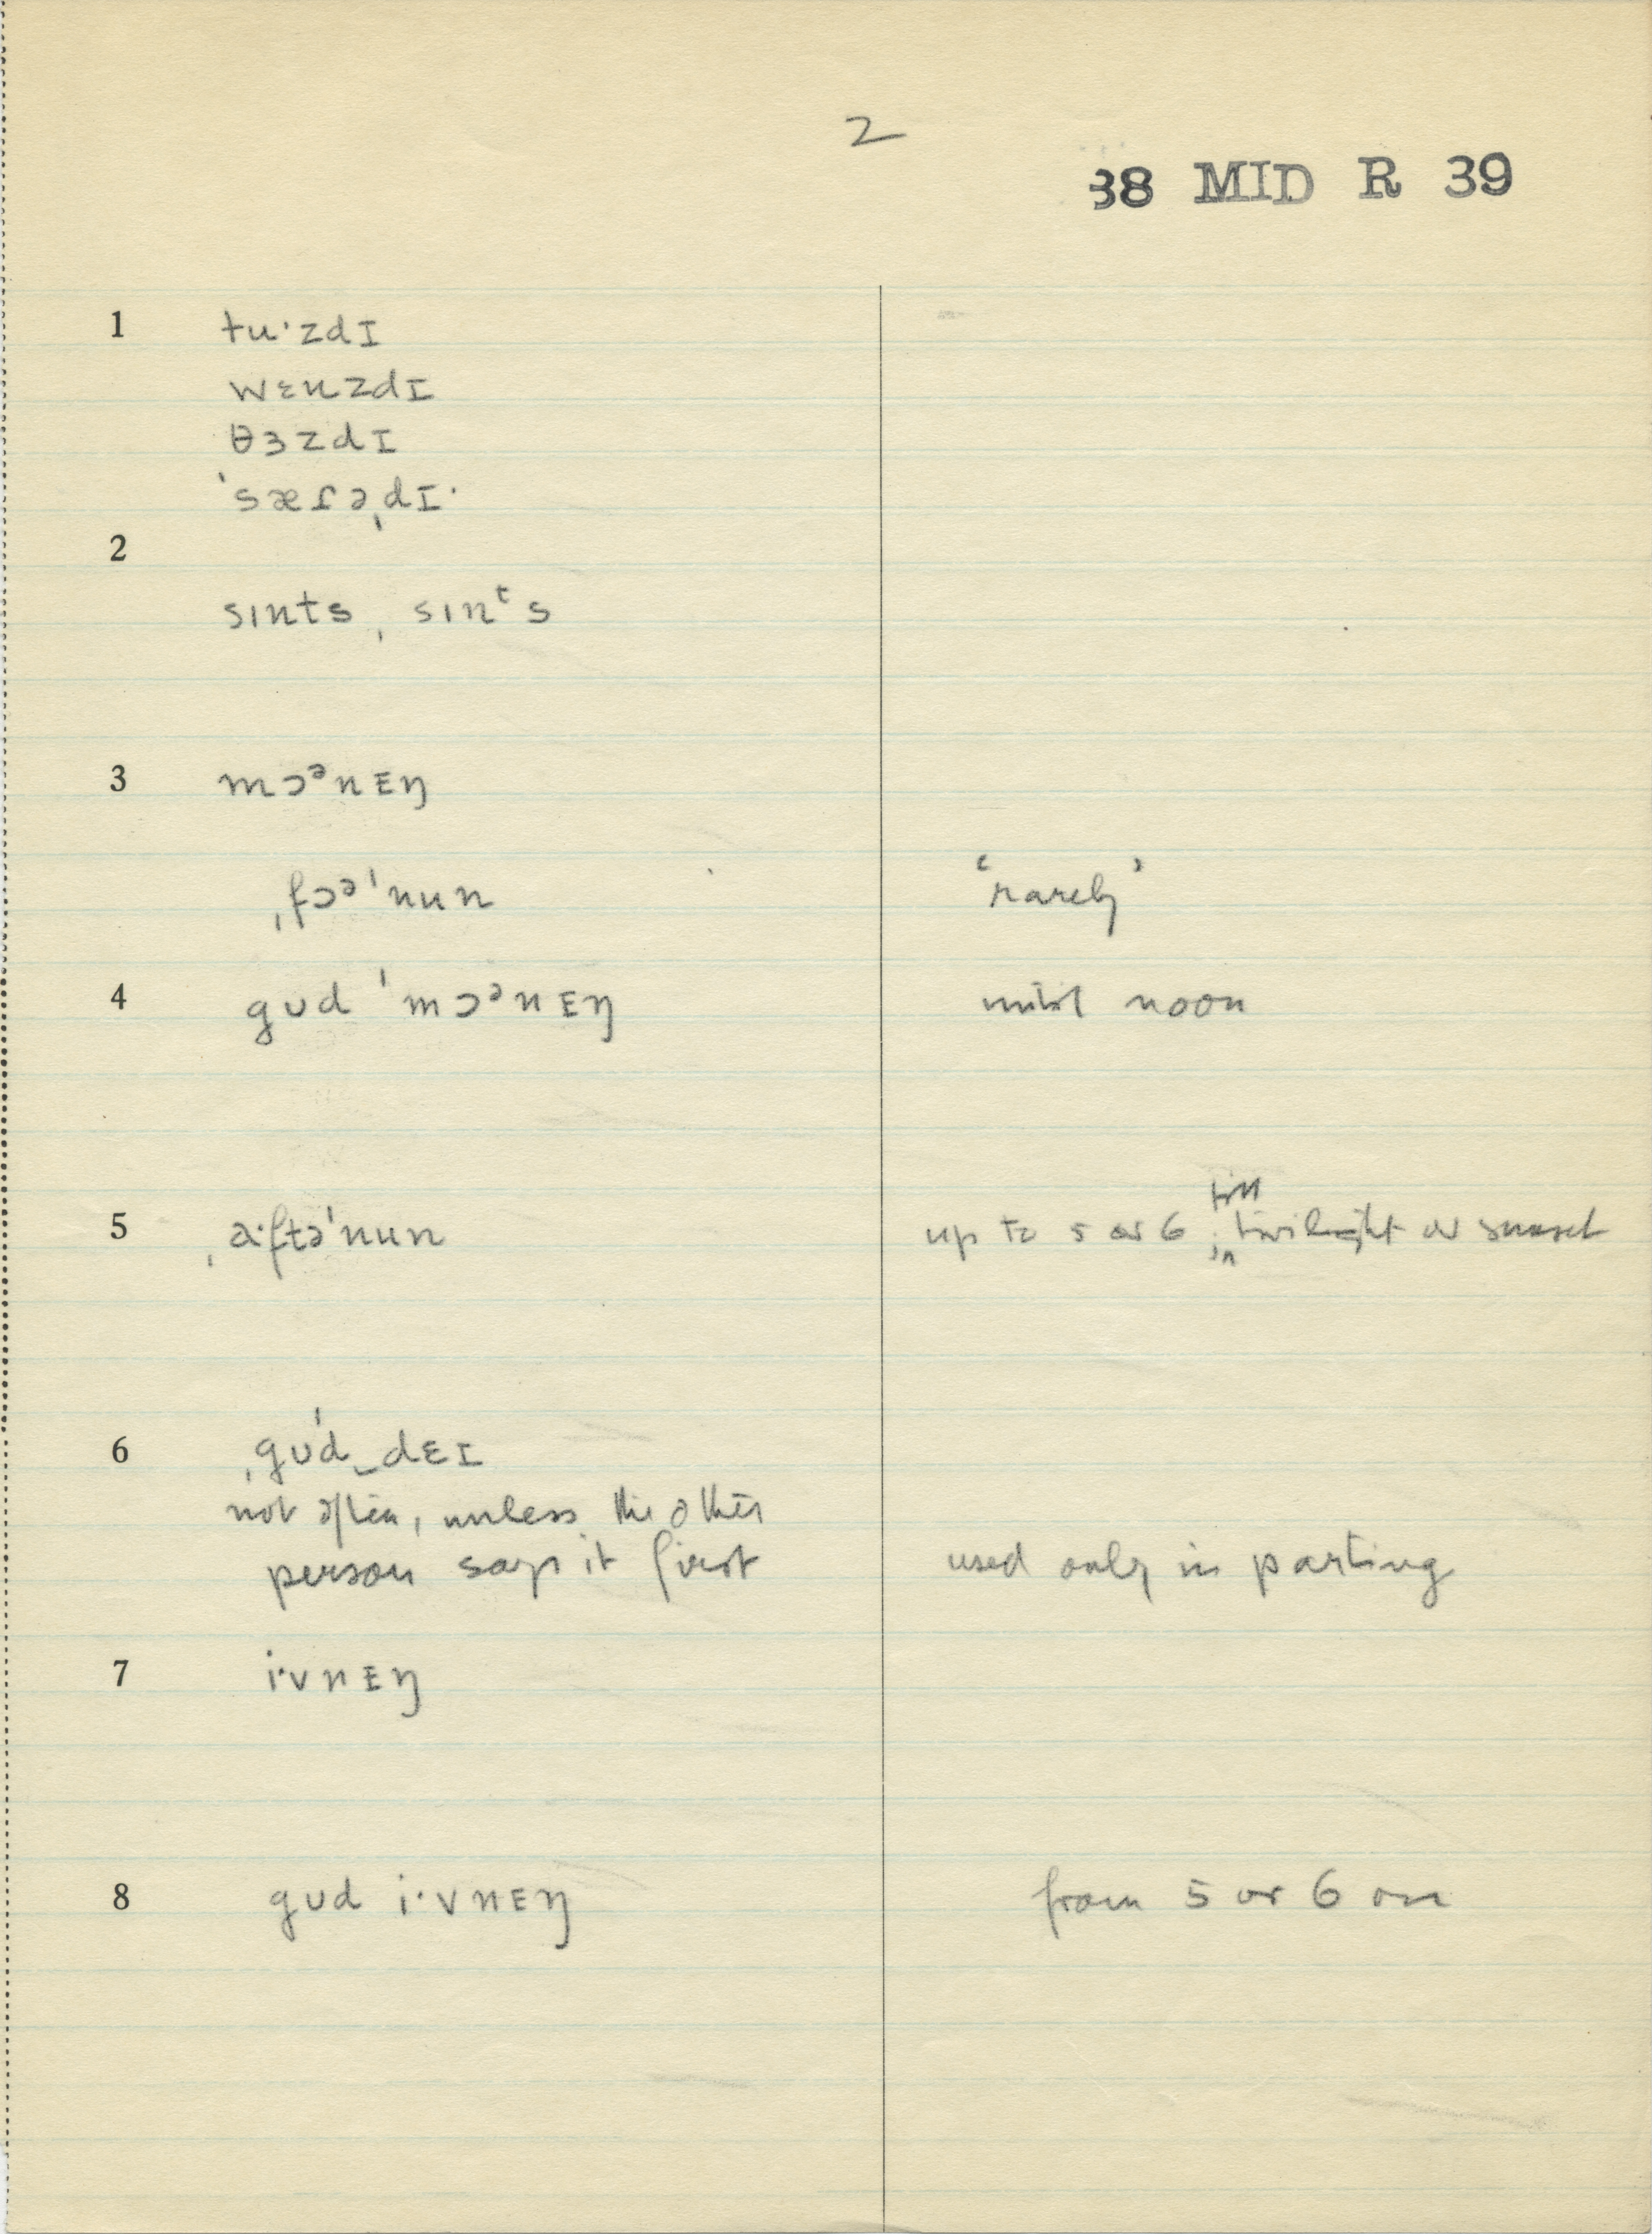 2
38 MID R 39
1 tu·zdɪ
wɛnzdɪ
θɜzdɪ
ˈsæɾəˌdɪ·
2
sɪnts, sɪnᵗs
3 mɔᵊnᵻŋ
ˌfɔᵊˈnun ‘rarely’
4 gʊd ˈmɔᵊnᵻŋ until noon
till
5 ˌa·ftəˈnun up to 5 or 6, in twilight or sunset
6 ˌgʊˈd‿dɛɪ
not often, unless the other
person says it first used only in parting
7 i·vnᵻŋ
8 gʊd i·vnᵻŋ from 5 or 6 on